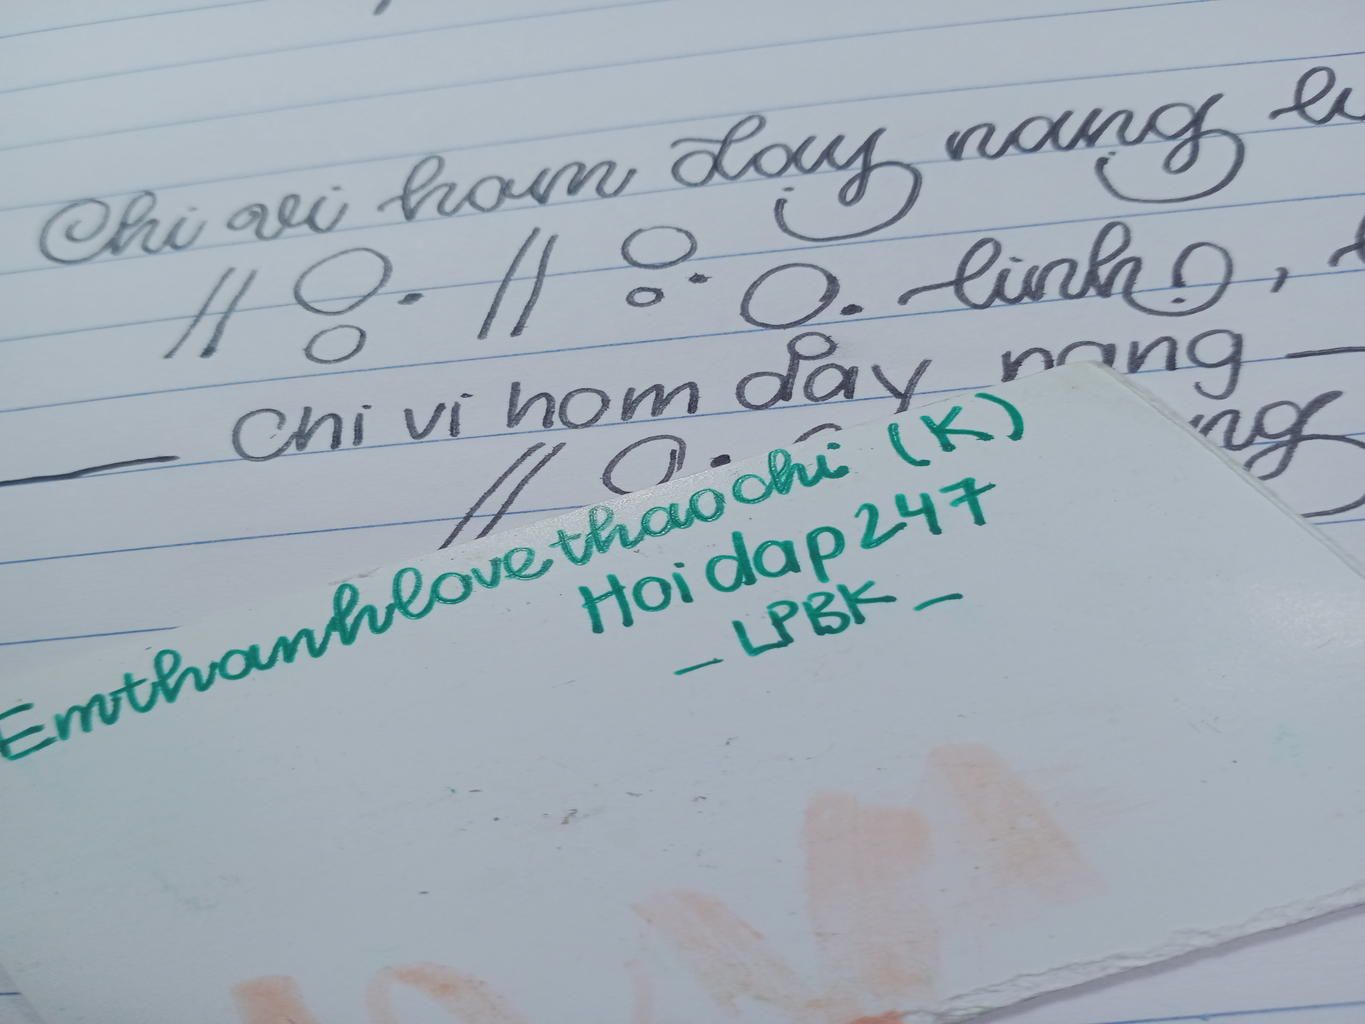 Chi vi hom day nang
linh,
Chi vi hom day nang
ng
Emthanhlovethaochi (K)
Hoidap247
_ LPBK _